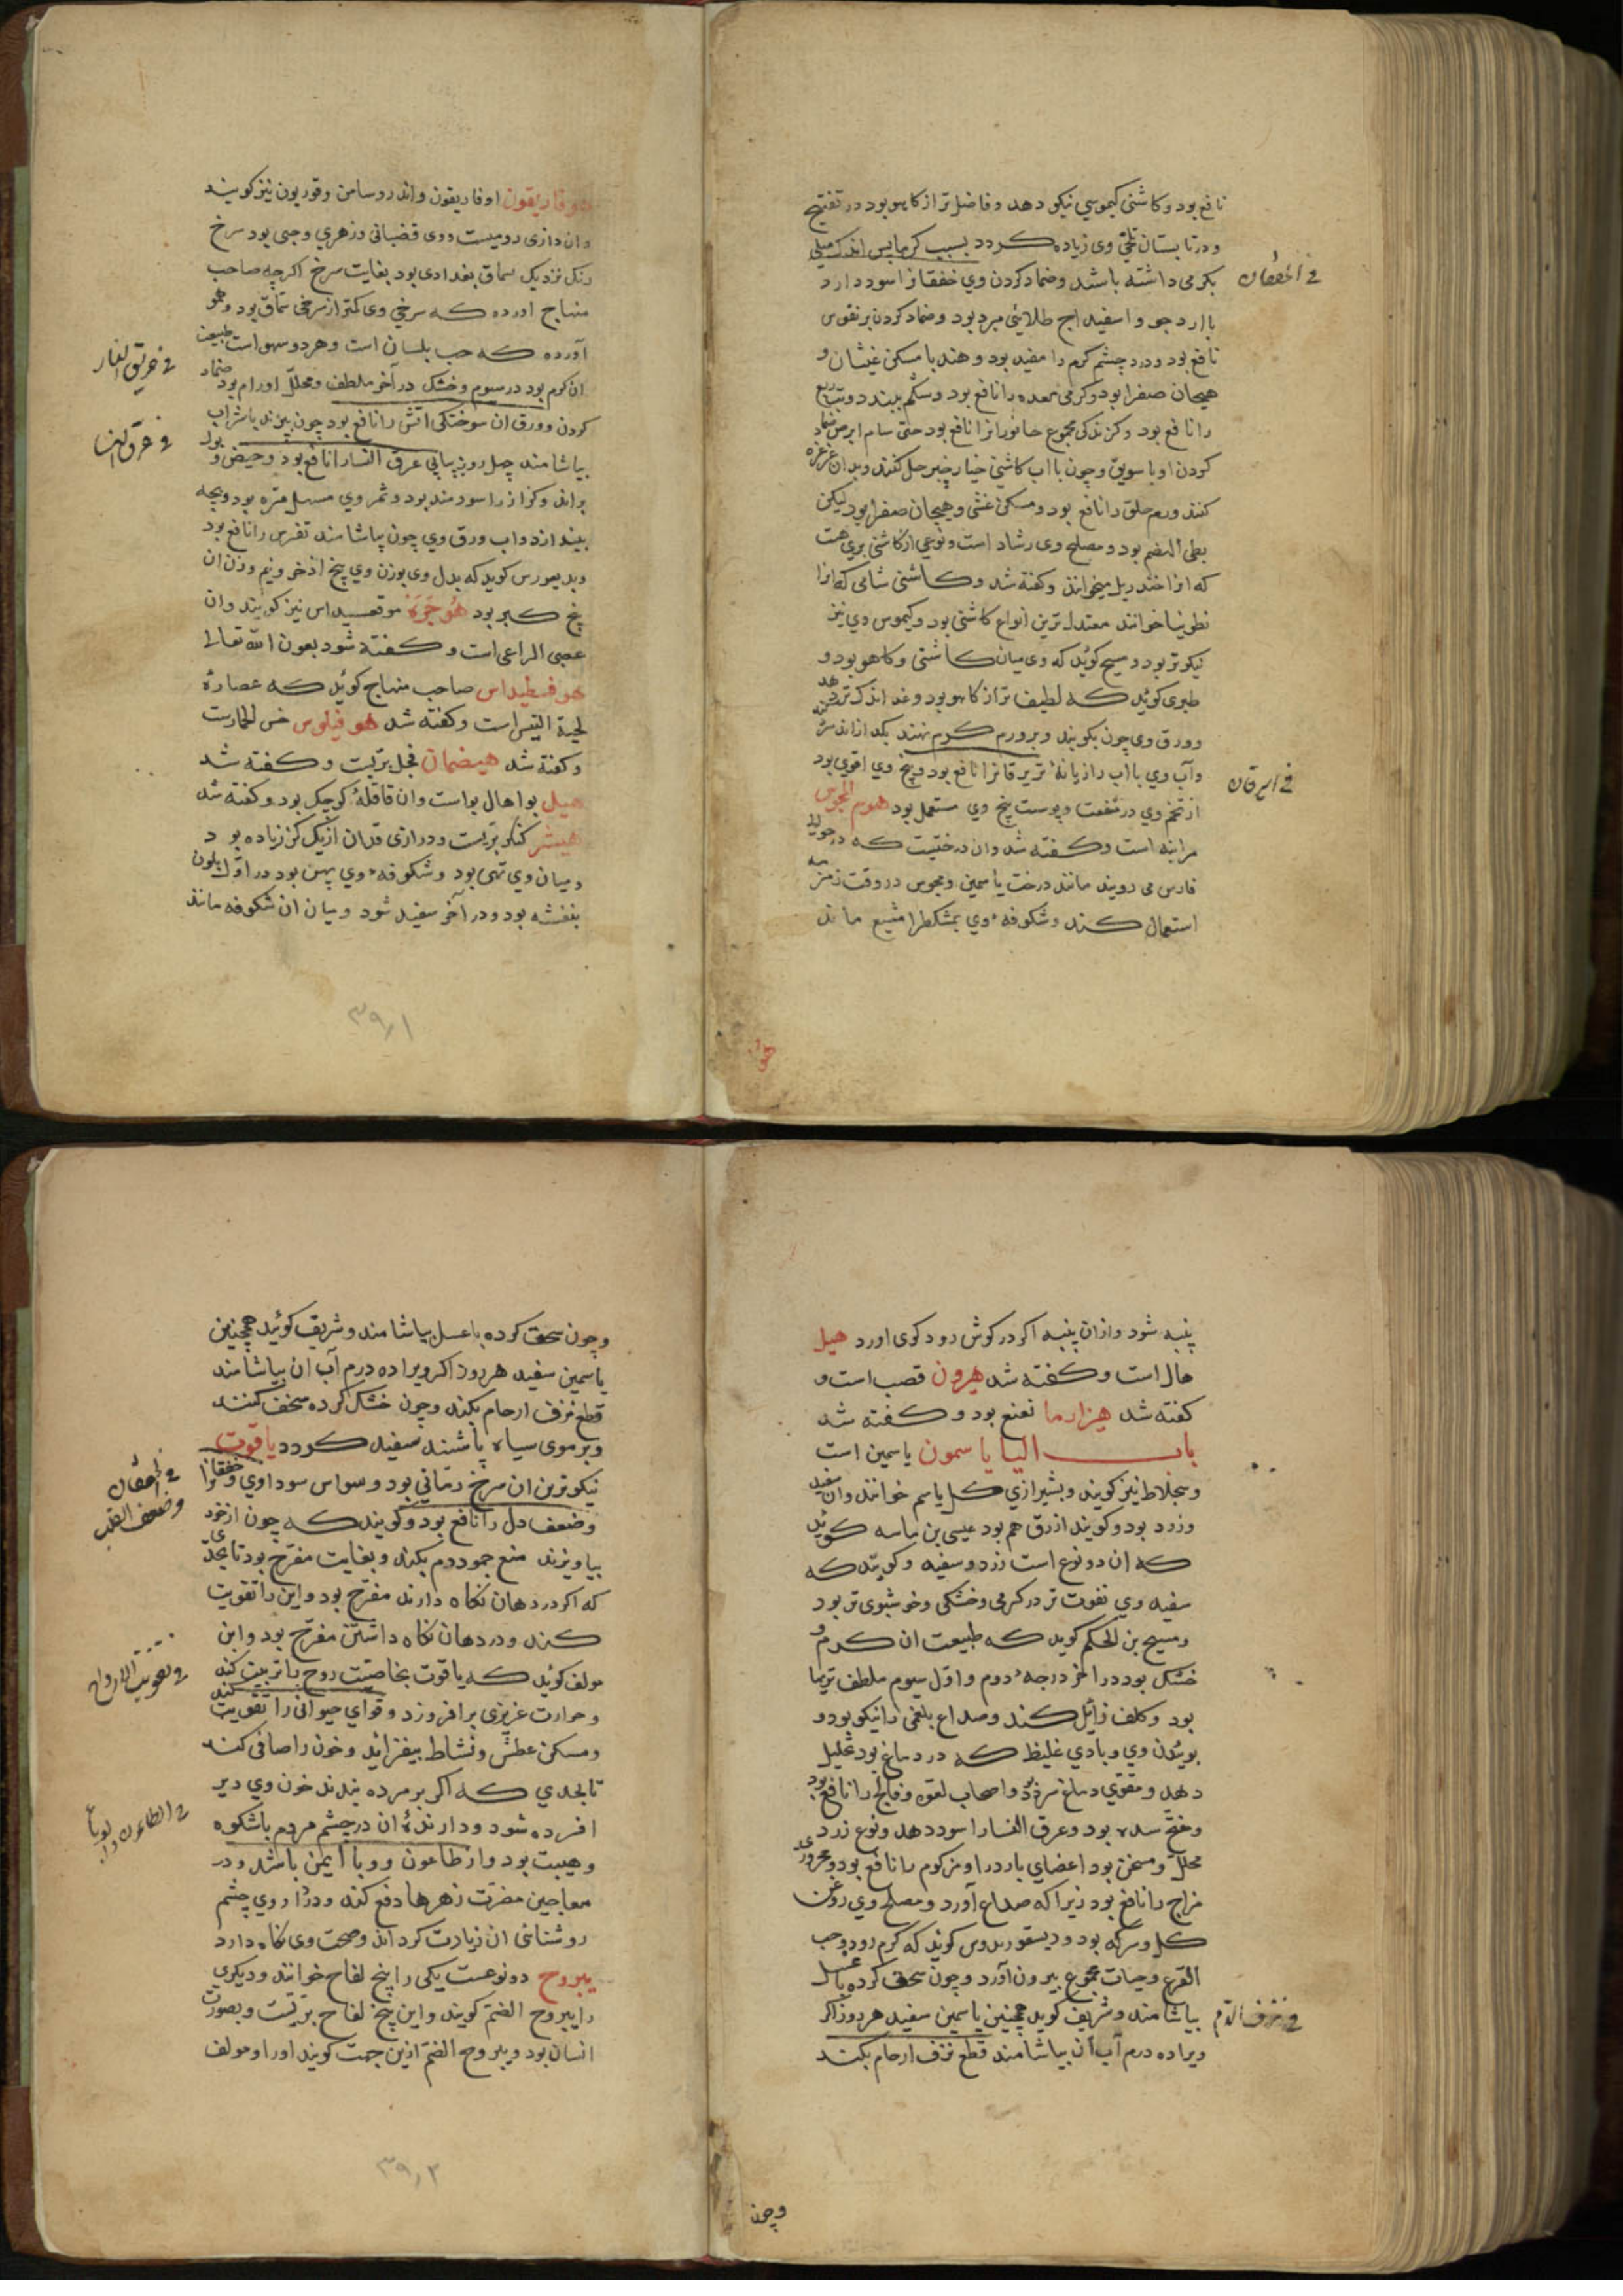 نافع بود و کاشنی کیموسی نیکو دهد و فاضل تر از کاهو بود در تفتیح
و در تابستان تلخی وی زیاده کردد بسبب کرما پس اندک میلی
بکرمی داشته باشد و ضماد کردن وی خفقانرا سود دارد
فی الخفقان
با ارد جو و اسفیداج طلائی مبرد بود و ضماد کردن بر نقرس
نافع بود و درد چشم کرم را مفید بود و هندبا مسکن غثیان و
هیجان صفرا بود و کرمی معده را نافع بود و شکم ببندد و تب ربع
را نافع بود و کزندکی مجموع جانورانرا نافع بود حتی سام ابرص ضماد
کردن او با سویق و چون با اب کاشنی خیارچنبر حل کنند و بدان غرغره
کنند ورم حلق را نافع بود و مسکن غشی و هیجان صفرا بود لیکن
بطی الهضم بود و مصلح وی رشاد است و نوعی از کاشنی بری هست
که انرا خندریل میخوانند و کفته شد و کاشنی شامی که انرا
نطوبیا خوانند معتدل ترین انواع کاشنی بود و کیموس وی نیز
نیکوتر بود و مسیح کوید که وی میان کاشنی و کاهو بود و
طبری کوید که لطیف تر از کاهو بود و غذا اندک تر دهد
و ورق وی چون بکوبند و بر ورم کرم نهند
و آب وی با اب رازیانه تر یرقانرا نافع بود و بیخ وی اقوی بود
فی الیرقان
از تخم وی در منفعت و پوست بیخ وی مستعمل بود هوم المجوس
مرانیه است و کفته شد وان درختیست که در حوالی
فارس می روید مانند درخت یاسمین و مجوس در وقت زمزمه
استعمال کنند و شکوفه وی بمشکطرامشیع ماند
هوفاریقون اوفاریقون و اندروسامن و قوریون نیز کویند
وان دازی رومیست و وی قضبانی و زهری و حبی بود سرخ
رنک نزدیک سماق بغدادی بود بغایت سرخ اکرچه صاحب
منهاج اورده که سرخی وی کمتر از سرخی سماق بود و هو
آورده که حب بلسان است و هر دو سهو است طبیعت
ان کرم بود در سیوم و خشک در آخر ملطف و محلل اورام بود ضماد
فی حریق النار
کردن و ورق ان سوختکی آتش را نافع بود چون بپزند با شراب
فی عرق النسا
بیاشامند چهل روز پیاپی عرق النسا را نافع بود و حیض و بول
براند و کزاز را سودمند بود و ثمر وی مسهل مره بود و بچه
بیندازد و اب ورق وی چون بیاشامند نقرس را نافع بود
و بدیغورس کوید که بدل وی بوزن وی بیخ اذخر و نیم وزن ان
بیخ کبر بود هوجره موقعیداس نیز کویند وان
عصی الراعی است و کفته شود بعون الله تعالی
هوفسطیداس صاحب منهاج کوید که عصاره
لحیة التیس است و کفته شد هوفیلوس خس الحمارست
و کفته شد هیضمان فجل بریست و کفته شد
هیل بوا هال بواست وان قاقله کوچک بود و کفته شد
هیشر کنکر بریست و درازی قد ان از یک کز زیاده بود
و میان وی تهی بود و شکوفه وی پهن بود در اول بلون
بنفشه بود و در آخر سفید شود و میان ان شکوفه مانند
هو
۳۹۱
پنبه شود و ازان پنبه اکر در کوش رود کری اورد هیل
هال است و کفته شد هیرون قصب است و
کفته شد هیزارما نعنع بود و کفته شد
باب الیا یاسمون یاسمین است
و سجلاط نیز کویند و بشیرازی کل یاسم خوانند وان سفید
و زرد بود و کویند ازرق هم بود عیسی بن ماسه کوید
که ان دو نوع است زرد و سفید و کویند که
سفید وی بقوت تر در کرمی و خشکی و خوشبوی تر بود
و مسیح بن الحکم کوید که طبیعت ان کرم و
خشک بود در اخر درجه دوم و اول سیوم ملطف رطوبتها
بود و کلف زایل کند و صداع بلغمی را نیکو بود و
بوئیدن وی و بادی غلیظ که در دماغ بود تحلیل
دهد و مقوی دماغ سرد بود و اصحاب لقوه و فالج را نافع بود
و مفتح سده بود و عرق النسا را سود دهد و نوع زرد
محلل و مسخن بود اعضای بارد را و مزکوم را نافع بود و محروری
مزاج را نافع بود زیرا که صداع آورد و مصلح وی روغن
کل و سرکه بود و دیسقوریدوس کوید که کرم رود و حب
القرع و حیات مجموع بیرون آورد و چون سحق کرده با عسل
بیاشامند و شریف کوید همچنین یاسمین سفید هر روز اکر
فی نزف الدم
ویرا ده درم آب آن بیاشامند قطع نزف ارحام بکند
و چون
و چون سحق کرده با عسل بیاشامند و شریف کوئید همچنین
یاسمین سفید هر روز اکر ویرا ده درم آب ان بیاشامند
قطع نزف ارحام بکند و چون خشک کرده سحق کنند
و بر موی سیاه پاشند سفید کردد یاقوت
نیکوترین ان سرخ رمانی بود وسواس سوداوی و خفقانرا
فی الخفقان
و ضعف القلب
و ضعف دل را نافع بود و کویند که چون از خود
بیاویزند منع جمود دم بکند و بغایت مفرح بود تا بحدی
که اکر در دهان نکاه دارند مفرح بود و این را تقویت
کند و در دهان نکاه داشتن مفرح بود و ابن
مولف کوید که یاقوت بخاصیت روح را تربیت کند
و حرارت غریزی برافروزد و قوای حیوانی را تقویت کند
و مسکن عطش و نشاط بیفزاید و خون را صافی کند
تا بحدی که اکر بر مرده بندند خون وی دیر
افسرده شود و دارنده ان در چشم مردم با شکوه
و هیبت بود و از طاعون و وبا ایمن باشد و در
معاجین مضرت زهرها دفع کند و در داروی چشم
روشنائی ان زیادت کرداند و صحت وی نکاه دارد
یبروح دو نوعست یکی را بیخ لفاح خوانند و دیکری
را یبروح الصنم کویند و این بیخ لفاح بریست و بصورت
انسان بود و یبروح الصنم ازین جهت کویند او را و مولف
۳۹۲